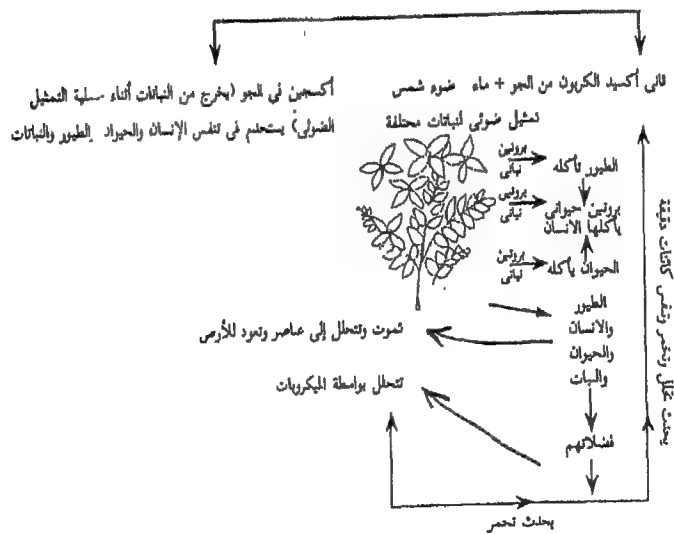 ثانى أكسيد الكربون من الجو + ماء ضوء شمس
تمثيل ضوئى لنباتات مختلفة
أكسجين فى الجو (يخرج من النباتات أثناء عملية التمثيل
الضوئى) يستخدم فى تنفس الإنسان والحيوان الطيور والنباتات
بروتين
نباتى
الطيور تأكله
بروتين
نباتى
بروتين حيوانى
يأكلها الانسان
بروتين
نباتى
الحيوان يأكله
الطيور
والانسان
والحيوان
والنبات
تموت وتتحلل إلى عناصر وتعود للأرض
تتحلل بواسطة الميكروبات
فضلاتهم
يحدث تخمر
يحدث تحلل وتخمر وتنفس كائنات دقيقة